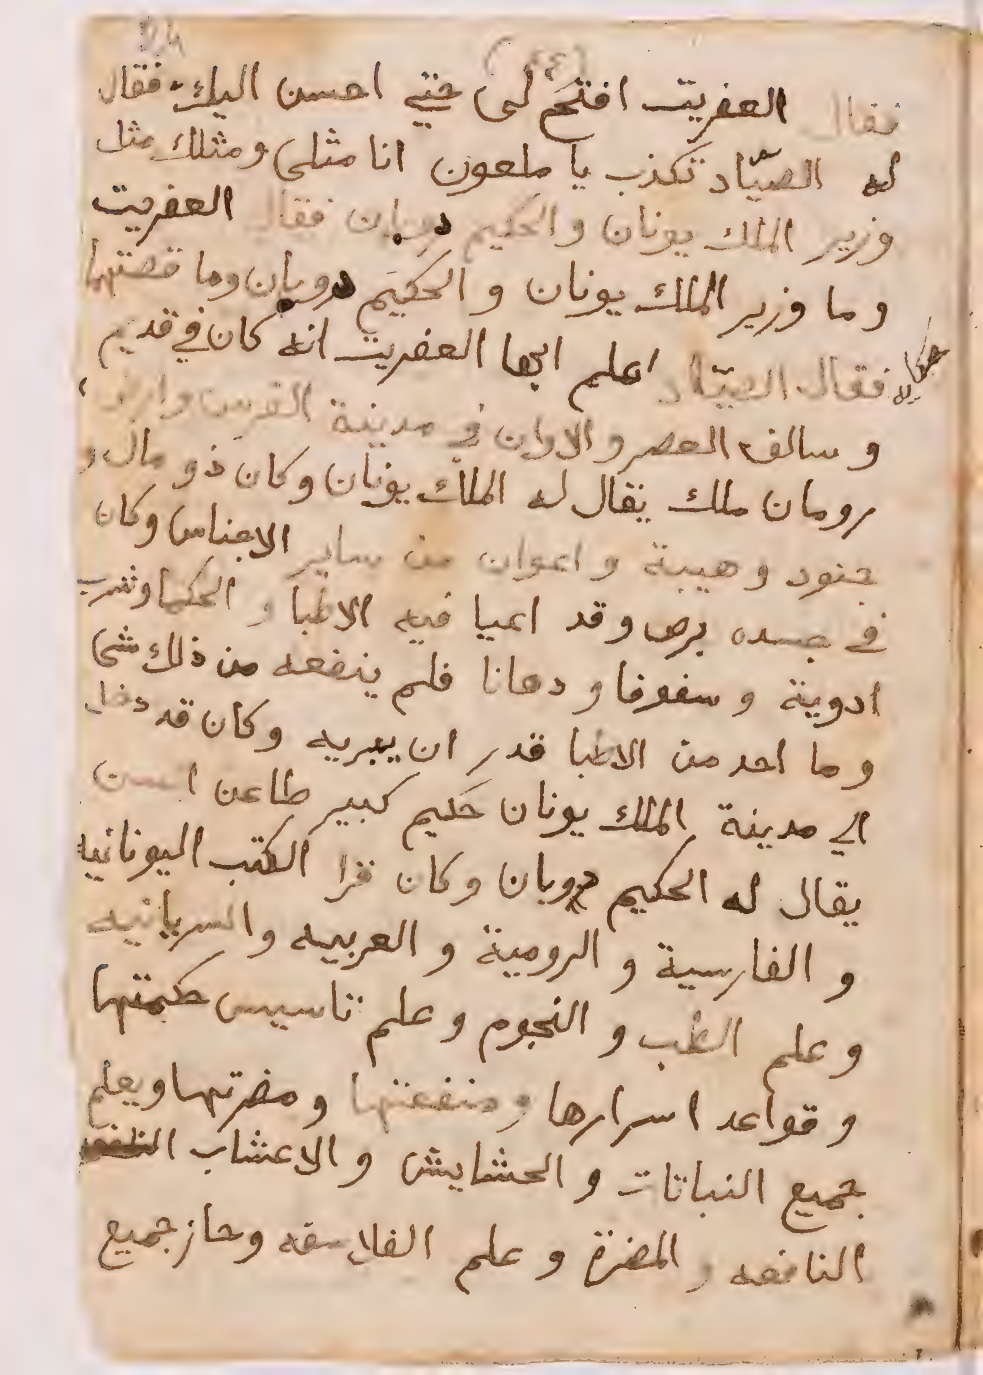 (٤٤)
فقال العفريت افتح لى حتي احسن اليك فقال
له الصيّاد تكذب يا ملعون انا مثلى ومثلك مثل
وزير الملك يونان والحكيم دوبان فقال العفريت
وما وزير الملك يونان و الحكيم دوبان وما قصتهما
حكاية
فقال الصيّاد اعلم ايها العفريت انه كان في قديم
و سالف العصر و الاوان في مدينة الفرس وارض
رومان ملك يقال له الملك يونان وكان ذو مال و
جنود وهيبة و اعوان من ساير الاجناس وكان
في جسده برص وقد اعيا فيه الاطبا و الحكما وشرب
ادوية و سفوفا و دهانا فلم ينفعه من ذلك شى
وما احد من الاطبا قدر ان يبريه وكان قد دخل
الي مدينة الملك يونان حكيم كبير طاعن السن
يقال له الحكيم دوبان وكان قرا الكتب اليونانيه
و الفارسية و الرومية و العربيه والسريانيه
و علم الطب و النجوم و علم تاسيس حكمتها
و قواعد اسرارها ومنفعتها ومضرتها ويعلم
جميع النباتات و الحشايش و الاعشاب
النافعه و المضرة و علم الفلاسفه وحاز جميع